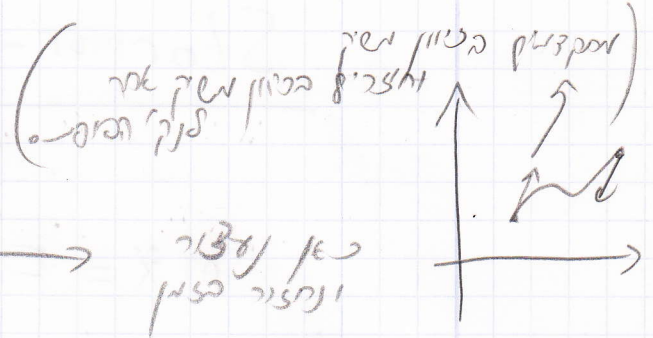 מתקדמים בכיוון משיק
וחוזרים בכיוון משיק אחר
לנק' הסוף
כאן נעצור
ונחזור בזמן